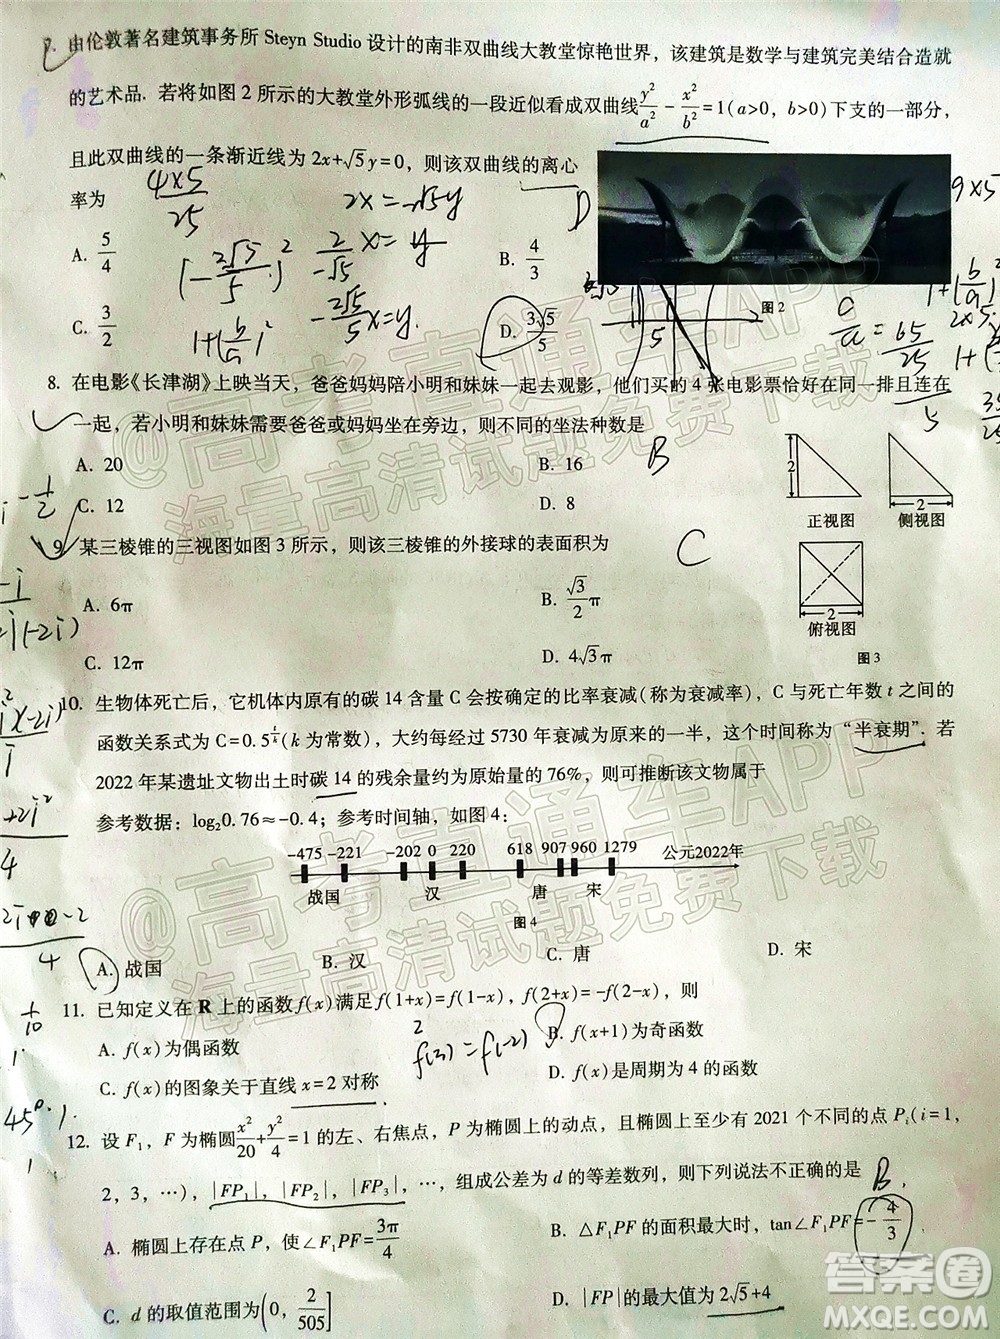 7. 由伦敦著名建筑事务所 Steyn Studio 设计的南非双曲线大教堂惊艳世界，该建筑是数学与建筑完美结合造就
的艺术品. 若将如图 2 所示的大教堂外形弧线的一段近似看成双曲线 y²/a² - x²/b² = 1(a>0, b>0)下支的一部分，
且此双曲线的一条渐近线为 2x+√5y=0，则该双曲线的离心
率为
4×5/25
2x=-√5y
D
9×5
A. 5/4
B. 4/3
(-2√5/5)²
2/-√5 x=y
图 2
C. 3/2
D. 3√5/5
-2√5/5 x=y
c/a=
8. 在电影《长津湖》上映当天，爸爸妈妈陪小明和妹妹一起去观影，他们买的 4 张电影票恰好在同一排且连在
一起，若小明和妹妹需要爸爸或妈妈坐在旁边，则不同的坐法种数是
B
A. 20
B. 16
C. 12
D. 8
2
2
正视图
侧视图
9. 某三棱锥的三视图如图 3 所示，则该三棱锥的外接球的表面积为
C
A. 6π
B. √3/2 π
2
俯视图
C. 12π
D. 4√3π
图 3
10. 生物体死亡后，它机体内原有的碳 14 含量 C 会按确定的比率衰减(称为衰减率)，C 与死亡年数 t 之间的
函数关系式为 C=0.5^(t/k)(k 为常数)，大约每经过 5730 年衰减为原来的一半，这个时间称为“半衰期”. 若
2022 年某遗址文物出土时碳 14 的残余量约为原始量的 76%，则可推断该文物属于
参考数据：log₂0.76≈-0.4；参考时间轴，如图 4：
-475 -221 -202 0 220 618 907 960 1279 公元2022年
战国 汉 唐 宋
图 4
A. 战国
B. 汉
C. 唐
D. 宋
11. 已知定义在 R 上的函数 f(x)满足 f(1+x)=f(1-x)，f(2+x)=-f(2-x)，则
A. f(x)为偶函数
B. f(x+1)为奇函数
f(3)=f(-2)
C. f(x)的图象关于直线 x=2 对称
D. f(x)是周期为 4 的函数
12. 设 F₁，F 为椭圆 x²/20 + y²/4 = 1 的左、右焦点，P 为椭圆上的动点，且椭圆上至少有 2021 个不同的点 Pᵢ(i=1,
2, 3, …)，|FP₁|，|FP₂|，|FP₃|，…，组成公差为 d 的等差数列，则下列说法不正确的是
B
A. 椭圆上存在点 P，使∠F₁PF=3π/4
B. △F₁PF 的面积最大时，tan∠F₁PF=-4/3
C. d 的取值范围为(0, 2/505]
D. |FP|的最大值为 2√5+4
@高考直通车APP
海量高清试题免费下载
@高考直通车APP
海量高清试题免费下载
答案圈
MXQE.COM